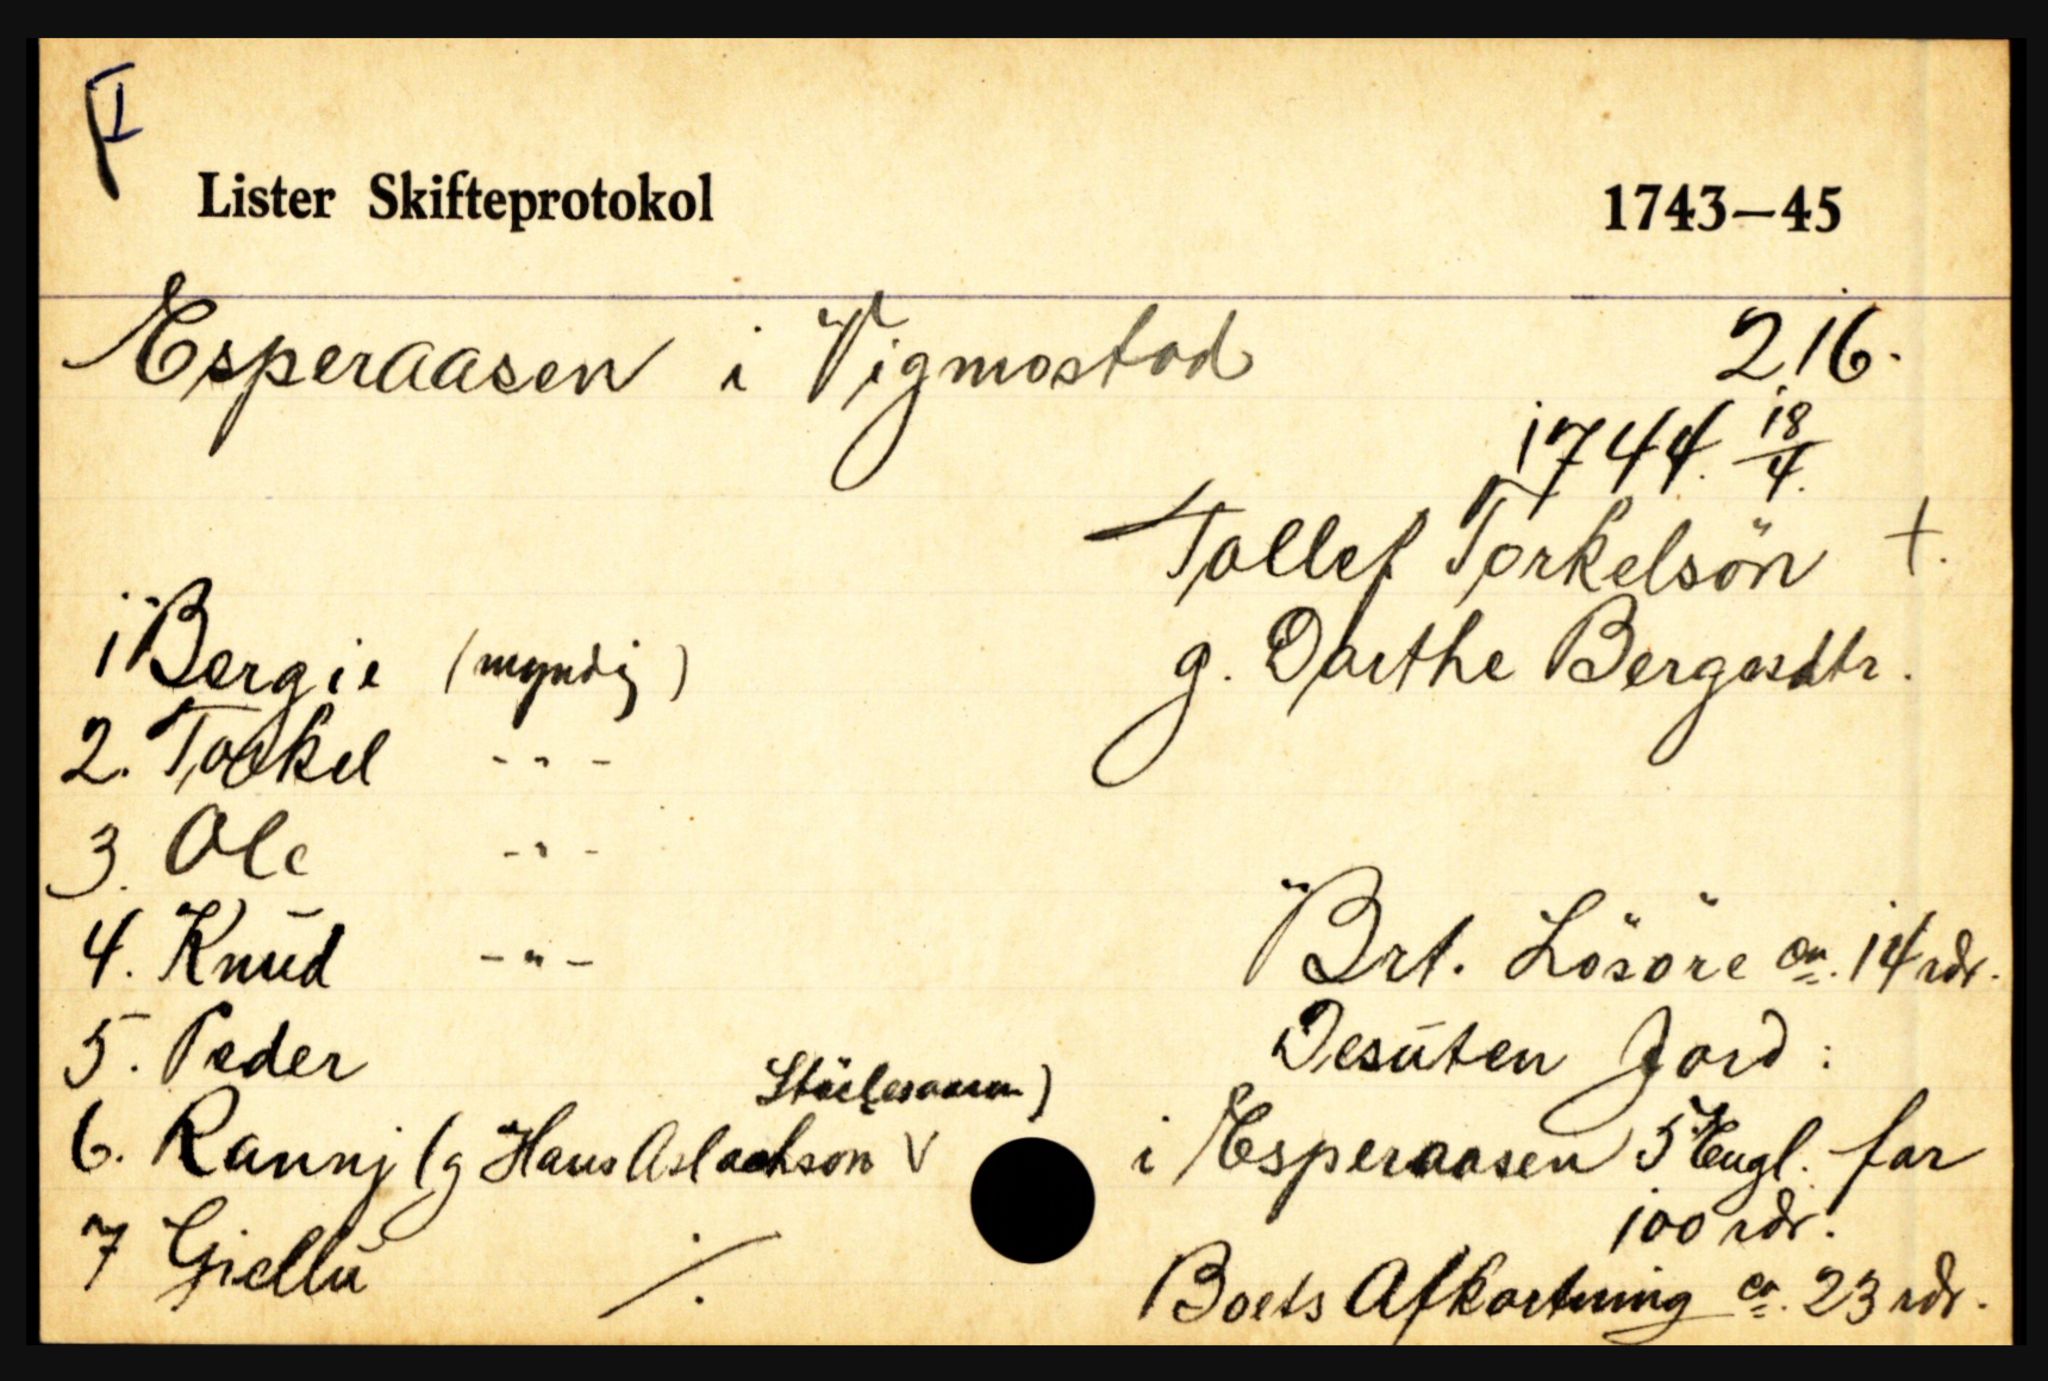 I
Lister Skifteprotokol 1743–45
Esperaasen i Vigmostad 216.
1744. 18/4.
Tollef Torkelsön +.
g. Dorthe Bergesdtr.
1 Bergie (myndig)
2. Torkel - " -
3. Ole - " -
4. Knud - " -
5. Peder
6. Rannj (g Hans Aslachson V
7 Giellu ./.
Brt. Lösöre ca. 14 rdr.
Desuten Jord:
i Esperaasen 5 Engl. for
100 rdr.
Boets Afkortning ca. 23 rdr.